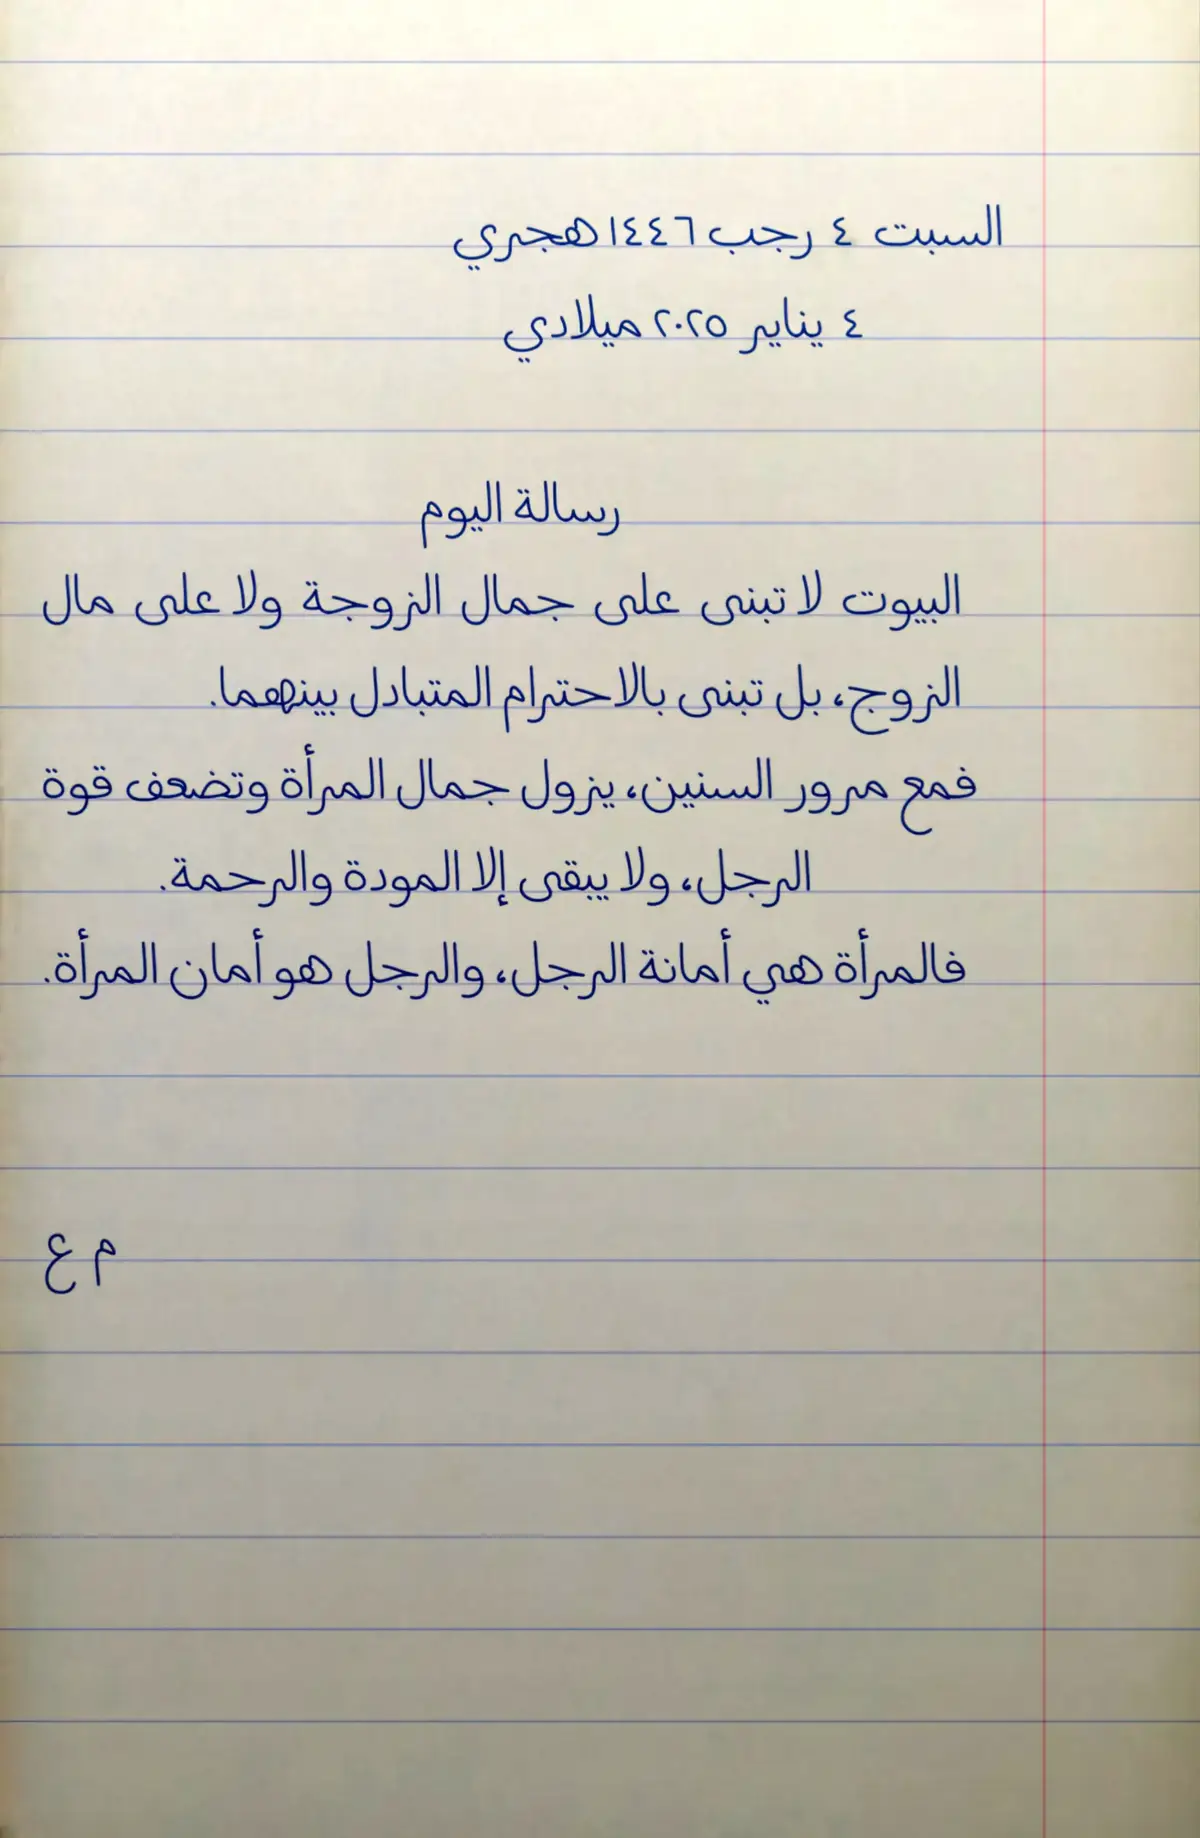 السبت ٤ رجب ١٤٤٦ هجري
٤ يناير ٢٠٢٥ ميلادي
رسالة اليوم
البيوت لا تبنى على جمال الزوجة ولا على مال
الزوج، بل تبنى بالاحترام المتبادل بينهما.
فمع مرور السنين، يزول جمال المرأة وتضعف قوة
الرجل، ولا يبقى إلا المودة والرحمة.
فالمرأة هي أمانة الرجل، والرجل هو أمان المرأة.
م ع